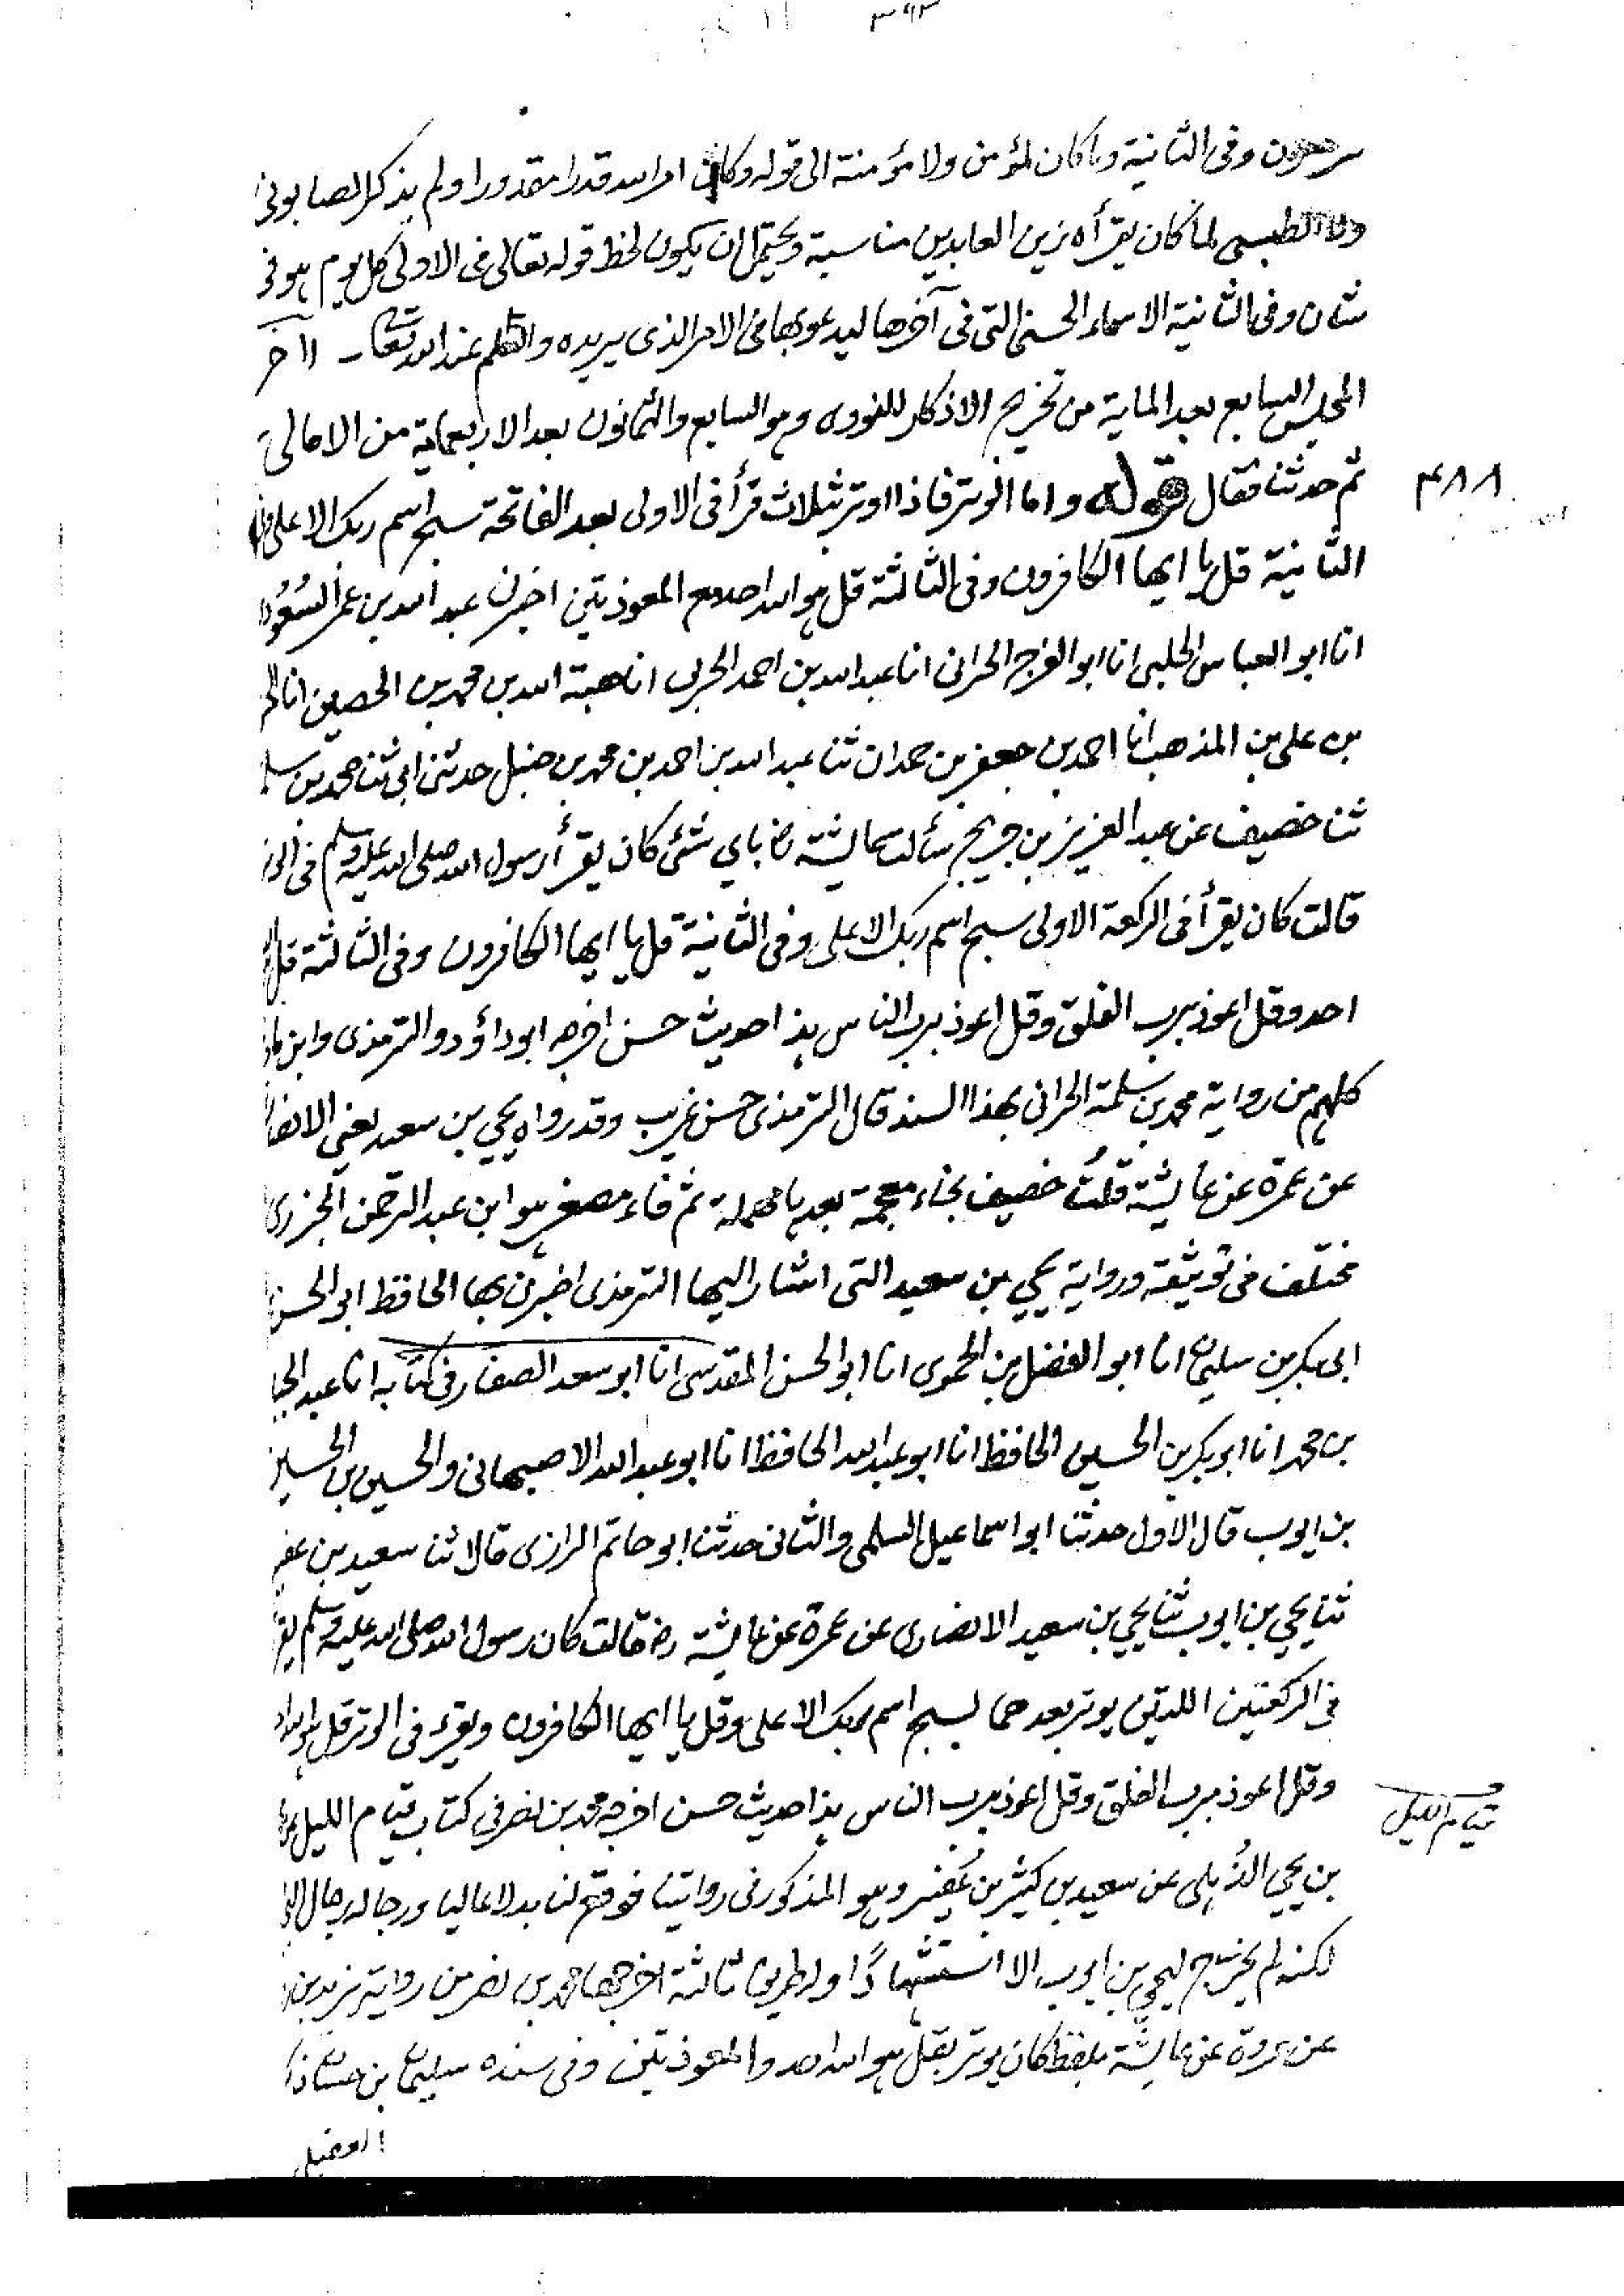 ٣٩٣
يرجعون وفى الثانية وما كان لمؤمن ولا مؤمنة الى قوله وكان امر الله قدرا مقدورا ولم يذكر الصابونى
ولا الطبسى لما كان يقرأه زين العابدين مناسبة ويحتمل ان يكون لحظ قوله تعالى فى الاولى كل يوم هو فى
شان وفى الثانية الاسماء الحسنى التى فى آخرها ليدعو بها فى الامر الذى يريده والعلم عند الله تعالى آخر
المجلس السابع بعد الماية من تخريج الاذكار للنووى وهو السابع والثمانون بعد الاربعماية من الامالى
٤٨٨
ثم حدثنا فقال قوله واما الوتر فاذا اوتر بثلاث قرأ فى الاولى بعد الفاتحة سبح اسم ربك الاعلى وفى
الثانية قل يا ايها الكافرون وفى الثالثة قل هو الله احد مع المعوذتين اخبرنى عبد الله بن عمر السعودى
انا ابو العباس الحلبى انا ابو الفرج الحرانى انا عبد الله بن احمد الحربى انا هبة الله بن محمد بن الحصين انا
بن على بن المذهب انا احمد بن جعفر بن حمدان ثنا عبد الله بن احمد بن محمد بن حنبل حدثنى ابى ثنا محمد بن سلمة
ثنا خصيف عن عبد العزيز بن جريج سألت عايشة رض باي شئ كان يقرأ رسول الله صلى الله عليه وسلم فى الوتر
قالت كان يقرأ فى الركعة الاولى سبح اسم ربك الاعلى وفى الثانية قل يا ايها الكافرون وفى الثالثة قل
احد وقل اعوذ برب الفلق وقل اعوذ برب الناس هذا حديث حسن اخرجه ابو داؤد والترمذى وابن ماجه
كلهم من رواية محمد بن سلمة الحرانى بهذا السند قال الترمذى حسن غريب وقد رواه يحيى بن سعيد يعنى الانصا
عن عمرة عن عايشة قلت خصيف بخاء معجمة بعدها مهملة ثم فاء مصغر هو ابن عبد الرحمن الجزرى
مختلف فى توثيقه ورواية يحيى بن سعيد التى اشار اليها الترمذى اخبرنى بها الحافظ ابو الحسن
ابى بكر بن سليمان انا ابو الفضل بن الحموى انا ابو الحسن المقدسى انا ابو سعد الصفار فى كتابه انا عبد الجبا
بن محمد انا ابو بكر بن الحسين الحافظ انا ابو عبد الله الحافظ انا ابو عبد الله الاصبهانى والحسين بن الحسين
بن ايوب قال الاول حدثنا ابو اسماعيل السلمى والثانى حدثنا ابو حاتم الرازى قالا ثنا سعيد بن عفير
ثنا يحيى بن ايوب ثنا يحيى بن سعيد الانصارى عن عمرة عن عايشة رض قالت كان رسول الله صلى الله عليه وسلم يقرأ
فى الركعتين اللتين يوتر بعدهما بسبح اسم ربك الاعلى وقل يا ايها الكافرون ويقرء فى الوتر قل هو الله
وقل اعوذ برب الفلق وقل اعوذ برب الناس هذا حديث حسن اخرجه محمد بن نصر فى كتاب قيام الليل عن
قيام الليل
بن يحيى الذهلى عن سعيد بن كثير بن عفير وهو المذكور فى روايتنا فوقع لنا بدلا عاليا ورجاله رجال
لكنه لم يخرج ليحيى بن ايوب الا استشهادا وله طريق ثالثة اخرجها محمد بن نصر من رواية يزيد بن
عن عروة عن عايشة بلفظ كان يوتر بقل هو الله احد والمعوذتين وفى سنده سليمان بن حسان
العقيلى